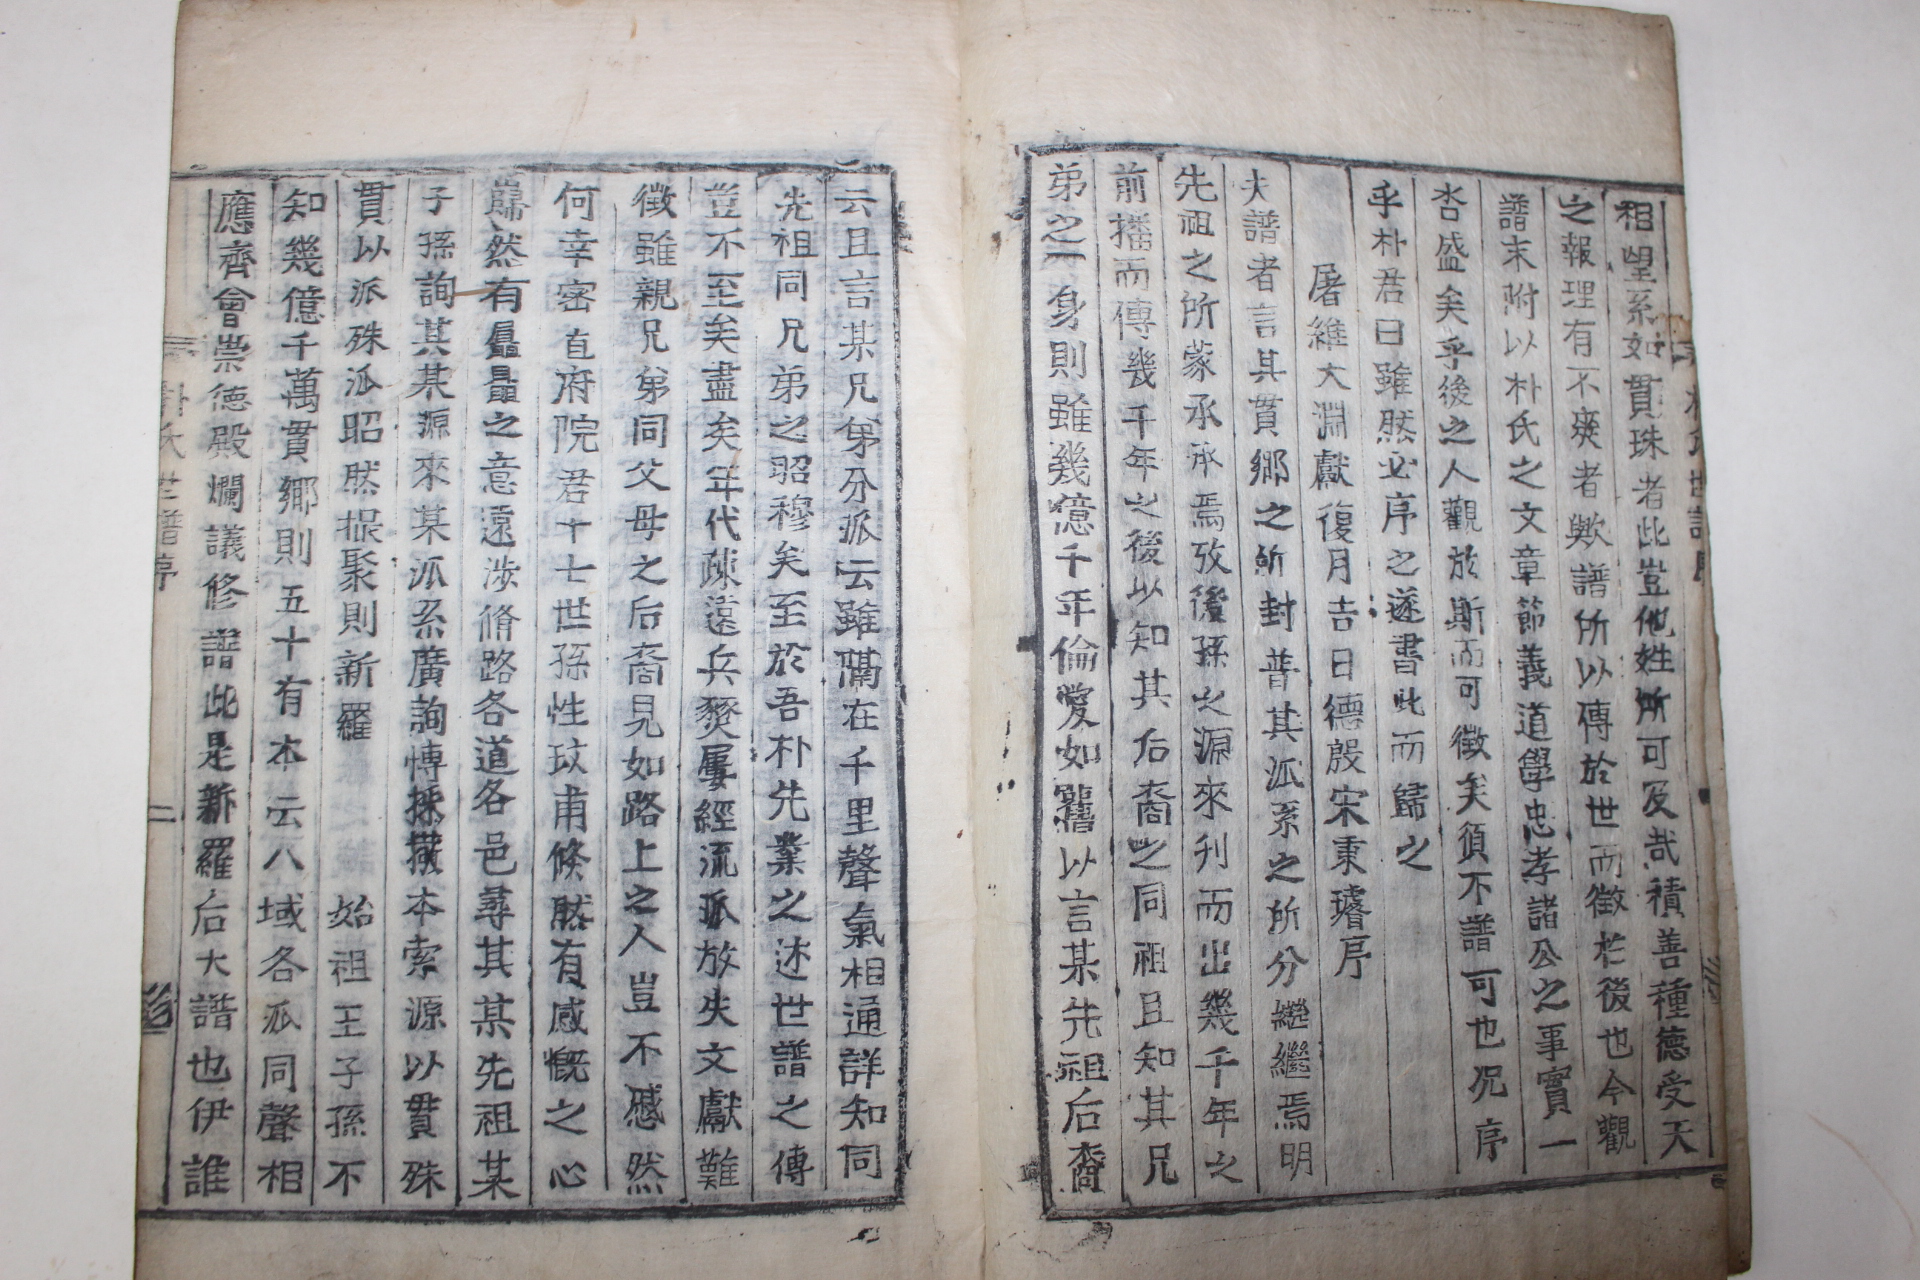 相望系如貫珠者此豈他姓所可及哉積善種德受天
之報理有不爽者歟譜所以傳於世而徵於後也今觀
譜末附以朴氏之文章節義道學忠孝諸公之事實一
杏盛矣乎後之人觀於斯而可徵矣須不譜可也況序
乎朴君曰雖然必序之遂書此而歸之
屠維大淵獻復月吉日德殷宋秉璿序
夫譜者言其貫鄉之所封普其派系之所分繼繼焉明
先祖之所蒙承承焉攷後孫之源來刋而出幾千年之
前播而傳幾千年之後以知其后裔之同祖且知其兄
弟之一身則雖幾億千年倫愛如舊以言某先祖后裔
云且言某兄弟分派云雖隔在千里聲氣相通詳知同
先祖同兄弟之昭穆矣至於吾朴先業之述世譜之傳
豈不至矣盡矣年代疎遠兵燹屢經流派放失文獻難
徵雖親兄弟同父母之后裔見如路上之人豈不慼然
何幸密直府院君十七世孫性玟甫倏然有感慨之心
巋然有贔贔之意遠涉脩路各道各邑尋其某先祖某
子孫詢其某源來某派系廣詢博採撒本索源以貫殊
貫以派殊派昭然撮聚則新羅
始祖王子孫不
知幾億千萬貫鄉則五十有本云八域各派同聲相
應齊會崇德殿爛議修譜此是新羅后大譜也伊誰
朴氏世譜序
二